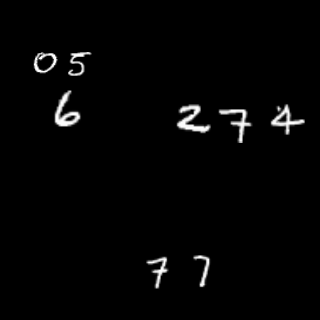 05
6 274
77